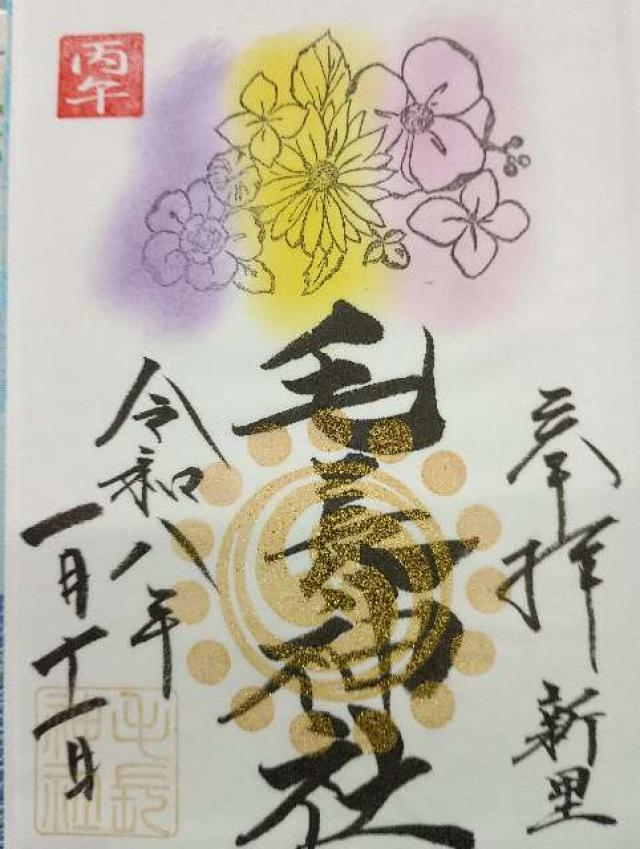 丙午
奉拝 新里
毛長神社
令和八年
一月十一日
毛長
神社